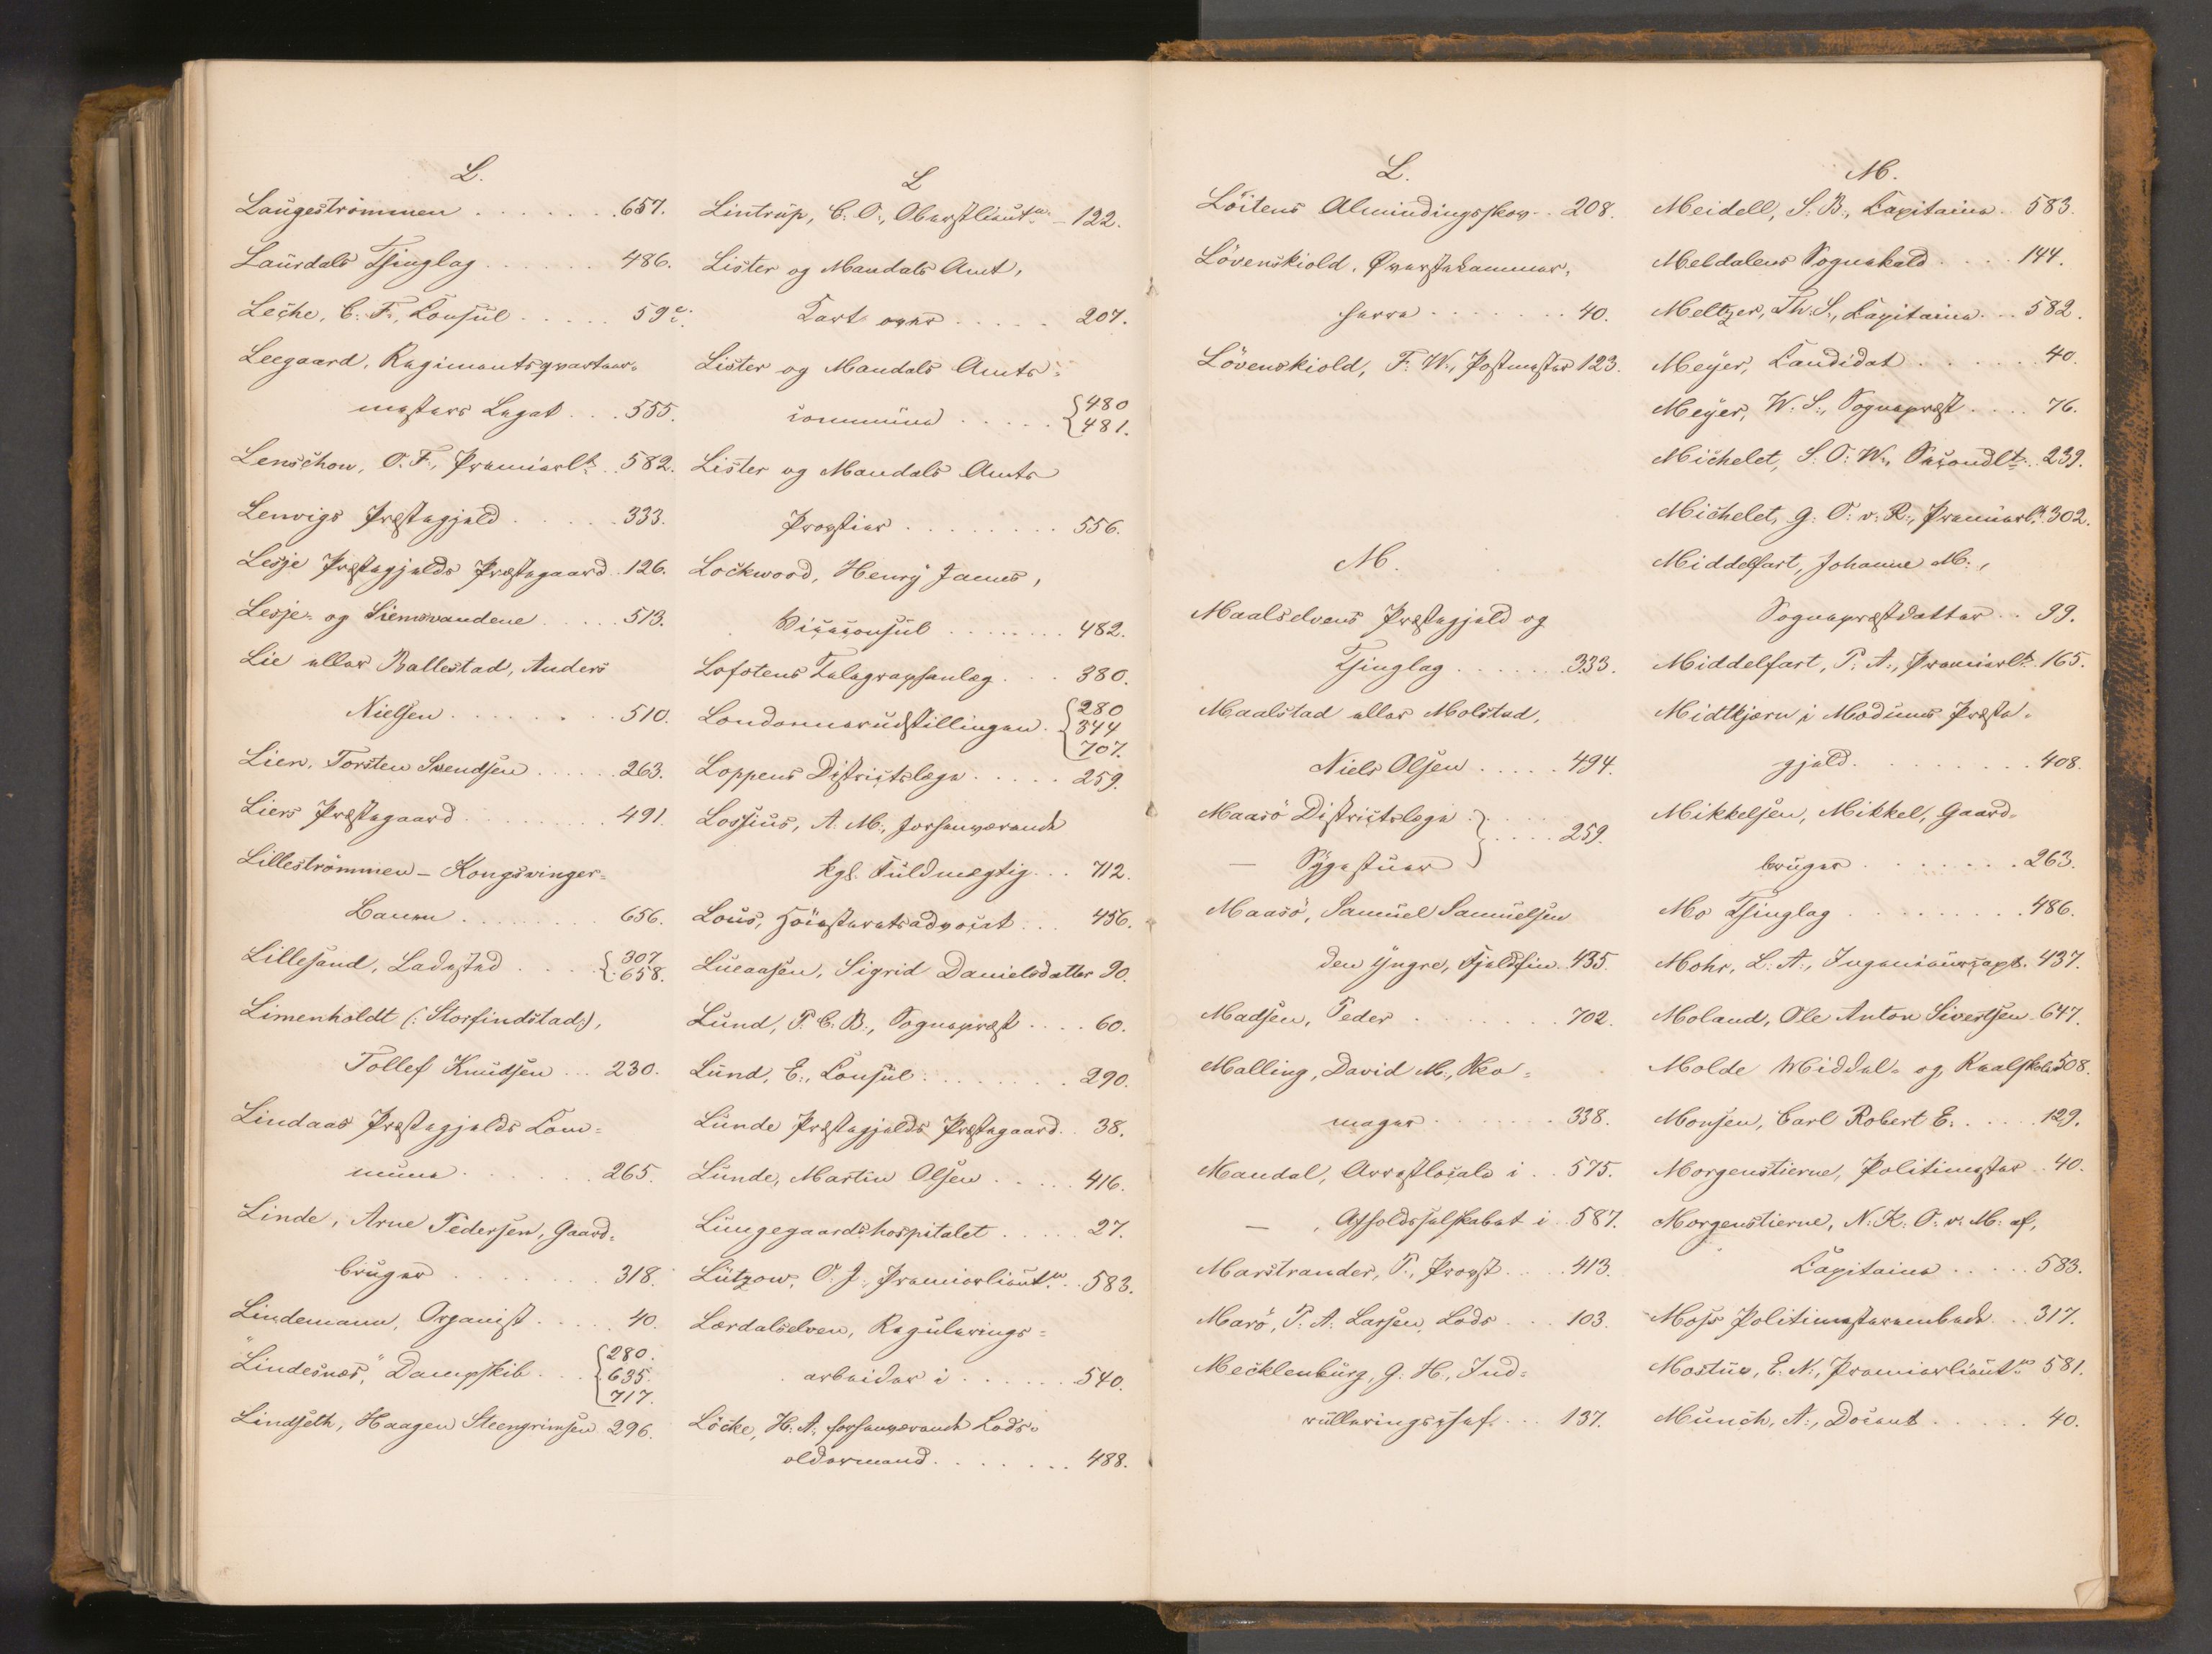 L.
Laugeströmmen . . . . . . . 657.
Laurdals Thinglag . . . . . . 486.
Leche, C. F., Consul . . . . . 59c.
Leegaard, Regimentsqvarteer-
mesters Legat . . . 555.
Lenschow, O. F., Premierlt. . 582.
Lenvigs Præstegjeld . . . . . 333.
Lesje Præstegjelds Præstegaard . 126.
Lesje- og Liemsvandene . . . . . 513.
Lie eller Ballestad, Anders
Nielsen . . . . . . . 510.
Lien, Torsten Svendsen . . . . . 263.
Liers Præstegaard . . . . . . 491.
Lilleströmmen - Kongsvinger-
Banen . . . . . . . 656.
Lillesand, Ladested . . . { 307. 658.
Limenholdt (: Storfindstad:),
Tollef Knudsen . . . 230.
Lindaas Præstegjelds Com-
mune . . . . . . 265.
Linde, Arne Pedersen, Gaard-
bruger . . . . . . . 318.
Lindemann, Organist . . . . . 40.
"Lindesnæs," Dampskib . . . { 280. 635. 717.
Lindseth, Haagen Steengrimsen 296.
L
Lintrup, C. O., Oberstlieutn. - 122.
Lister og Mandals Amt,
Cart over . . . . . 207.
Lister og Mandals Amts-
commune . . . . . { 480 481.
Lister og Mandals Amts
Provstier . . . . . . . . 556.
Lockwood, Henry James,
Viceconsul . . . . . . . . 482.
Lofotens Telegraphanlæg . . . 380.
Londonnerudstillingen . { 280 344 707.
Loppens Districtslæge . . . . . 259.
Lossius, A. M., forhenværende
kgl. Fuldmægtig . . . 712.
Lous, Höiesteretsadvocat . . . 456.
Lueaasen, Sigrid Danielsdatter 90.
Lund, P. C. B., Sognepræst . . . . 60.
Lund, E., Consul . . . . . . . . 290.
Lunde Præstegjelds Præstegaard . . 38.
Lunde, Martin Olsen . . . . . 416.
Lungegaardshospitalet . . . . . 27.
Lützow, O. J., Premierlieutn. . . 583.
Lærdalselven, Regulerings-
arbeider i . . . . . . 540.
Löcke, H. A., forhenværende Lods-
oldermand . . . . . . . 488.
L.
Löitens Almindingsskov . . 208.
Lövenskiold, Överstekammer-
herre . . . . . . . 40.
Lövenskiold, F. W., Postmester 123.
M.
Maalselvens Præstegjeld og
Thinglag . . . . . . 333.
Maalstad eller Molstad,
Niels Olsen . . . . . 494.
Maasö Districtslæge . } . . . . 259.
— Sygestuer
Maasö, Samuel Samuelsen
den Yngre, Fjeldfin . 435.
Madsen, Peder . . . . . . . 702.
Malling, David M., Sko-
mager . . . . . . . 338.
Mandal, Arrestlocale i . . 575.
— , Afholdsselskabet i . 587.
Marstrander, P., Provst . . . . 413.
Marö, P. A. Larsen, Lods . . . 103.
Mecklenburg, G. H., Ind-
rulleringschef . . . 137.
M.
Meidell, S. B., Capitaine . 583.
Meldalens Sognekald . . . . 144.
Meltzer, Th. S., Capitaine . . . 582.
Meyer, Candidat . . . . . . 40.
Meyer, W. S., Sognepræst . . . . 76.
Michelet, S. O. W., Secondlt. . . 239.
Michelet, G. P. v. R., Premierlt. 302.
Middelfart, Johanne M.,
Sognepræstdatter . . 99.
Middelfart, P. A., Premierlt. 165.
Midtkjærn i Modums Præste-
gjeld . . . . . . . . . 408.
Mikkelsen, Mikkel, Gaard-
bruger . . . . . . . . 263.
Mo Thinglag . . . . . . . . . 486.
Mohr, L. A., Ingenieurcapt. 437.
Moland, Ole Anton Sivertsen . 647.
Molde Middel- og Realskole 508.
Monsen, Carl Robert E. . . . . . 129.
Morgenstierne, Politimester . . 40.
Morgenstierne, N. K. O. v. M. af,
Capitaine . . . . . 583.
Moss Politimesterembede . . . 317.
Mostue, E. N., Premierlieutn. 581.
Munch, A., Docent . . . . . . 40.